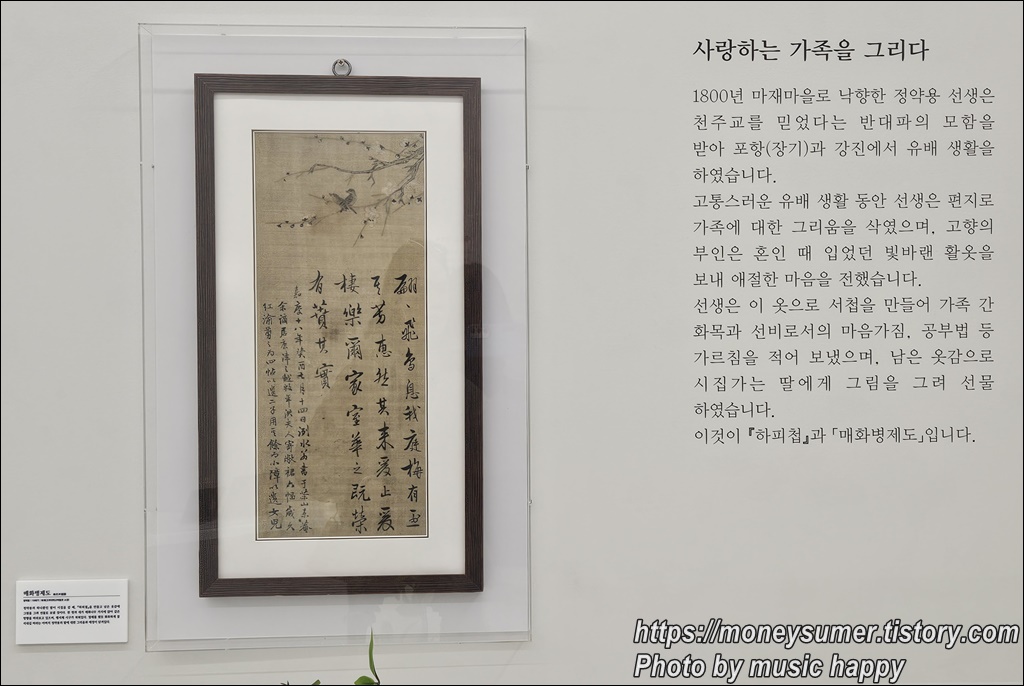 사랑하는 가족을 그리다
1800년 마재마을로 낙향한 정약용 선생은
천주교를 믿었다는 반대파의 모함을
받아 포항(장기)과 강진에서 유배 생활을
하였습니다.
고통스러운 유배 생활 동안 선생은 편지로
가족에 대한 그리움을 삭였으며, 고향의
부인은 혼인 때 입었던 빛바랜 활옷을
보내 애절한 마음을 전했습니다.
선생은 이 옷으로 서첩을 만들어 가족 간
화목과 선비로서의 마음가짐, 공부법 등
가르침을 적어 보냈으며, 남은 옷감으로
시집가는 딸에게 그림을 그려 선물
하였습니다.
이것이 『하피첩』과 「매화병제도」입니다.
翩〻飛鳥息我庭梅有烈
其芳惠然其來爰止爰
棲樂爾家室華之旣榮
有蕡其實
嘉慶十八年癸酉七月十四日洌水翁書于茶山東菴
余謫居康津之越數年洪夫人寄敝裙六幅歲久
紅渝剪之爲四帖以遺二子用其餘爲小障以遺女兒
매화병제도
https://moneysumer.tistory.com
Photo by music happy